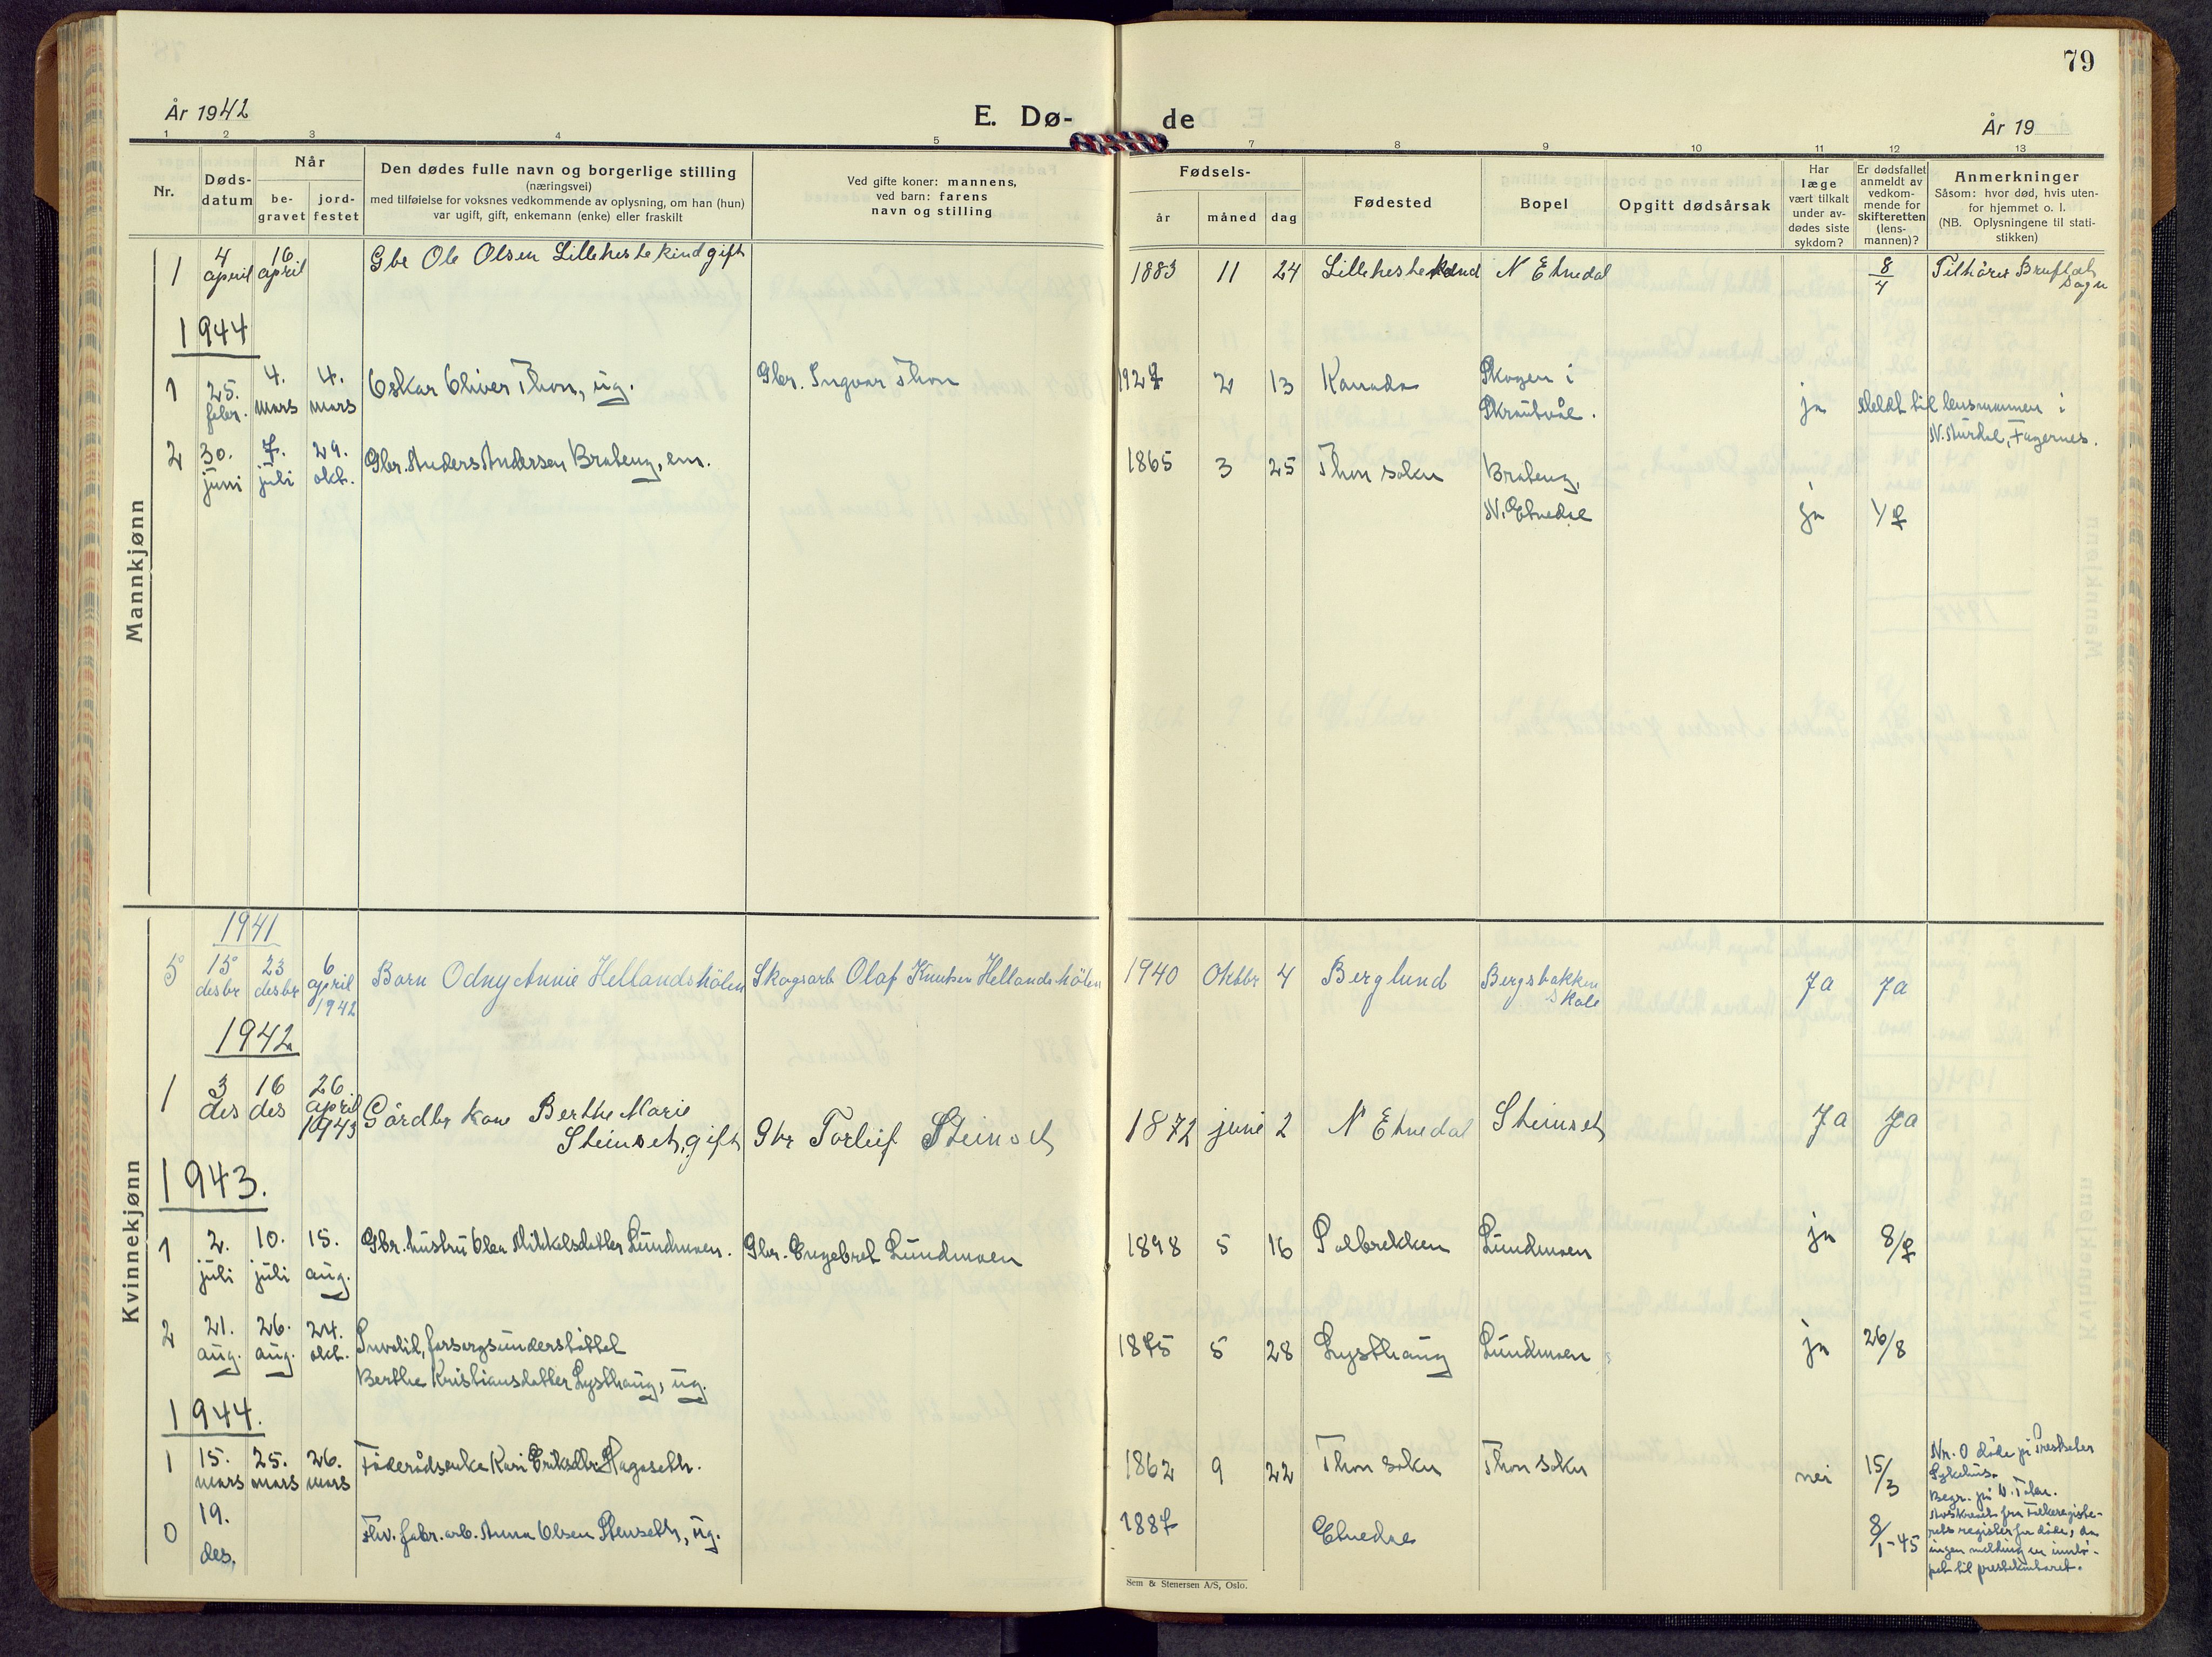 79
År 1942
E. Dø-
de
År 19
1 2 3 4 5 7 8 9 10 11 12 13
Nr.
Døds-
datum
Når
be-
gravet
jord-
festet
Den dødes fulle navn og borgerlige stilling
(næringsvei)
med tilføielse for voksnes vedkommende av oplysning, om han (hun)
var ugift, gift, enkemann (enke) eller fraskilt
Ved gifte koner: mannens,
ved barn: farens
navn og stilling
Fødsels-
år måned dag
Fødested
Bopel
Opgitt dødsårsak
Har
læge
vært tilkalt
under av-
dødes siste
sykdom?
Er dødsfallet
anmeldt av
vedkom-
mende for
skifteretten
(lens-
mannen)?
Anmerkninger
Såsom: hvor død, hvis uten-
for hjemmet o. l.
(NB. Oplysningene til stati-
stikken)
Mannkjønn
1 4 april 16 april Gbr Ole Olsen Lillehestekind gift 1883 11 24 Lillehestekind N Etnedal 8/4 Tilhører Bruflat
Sogn
1944
1 25. febr. 4. mars 4. mars Oskar Oliver Thon, ug. Gbr. Ingvar Thon 1927 2 13 Kanada Skogen i
Skrautvål. ja Meldt til lensmannen i
N. Aurdal, Fagernes.
2 30. juni 7. juli 29. okt. Gbr. Anders Andersen Brateng, em. 1865 3 25 Thon sokn Brateng,
N. Etnedal ja 1/7
Kvinnekjønn
1941
5 15 desbr 23 desbr 6 april 1942 Barn Odny Annie Hellandshölen Skogsarb Olaf Knutsen Hellandshölen 1940 Oktbr 4 Berglund Bergsbakken
Skole Ja Ja
1942
1 3 des 16 des 26 april 1943 Gårdbr kone Berthe Marie
Steinset, gift Gbr Torleif Steinset 1872 juni 2 N Etnedal Steinset Ja Ja
1943.
1 2. juli 10. juli 15. aug. Gbr. hustru Olea Mikkelsdatter Lundmoen. Gbr. Engebret Lundmoen 1898 5 16 Solbrekken Lundmoen ja 8/7
2 21. aug. 26. aug. 24. okt. Invalid, forsorgsunderstøttet
Berthe Kristiansdatter Lysthaug, ug. 1875 5 28 Lysthaug Lundmoen ja 26/8
1944.
1 15. mars 25. mars 26. mars Føderådsenke Kari Eriksdtr. Hagaseth. 1862 9 22 Thon sokn Thon sokn nei 15/3
0 19. des. Fhv. fabr. arb. Anna Olsen Stenseth, ug. 1887 Etnedal 8/1-45
Nr. 0 døde på Prestseter
Sykehus.
Begr. på V. Toten.
Avskrevet fra Folkeregiste-
rets register for døde, da
ingen melding er innlø-
pet til prestekontoret.
Sem & Stenersen A/S, Oslo.